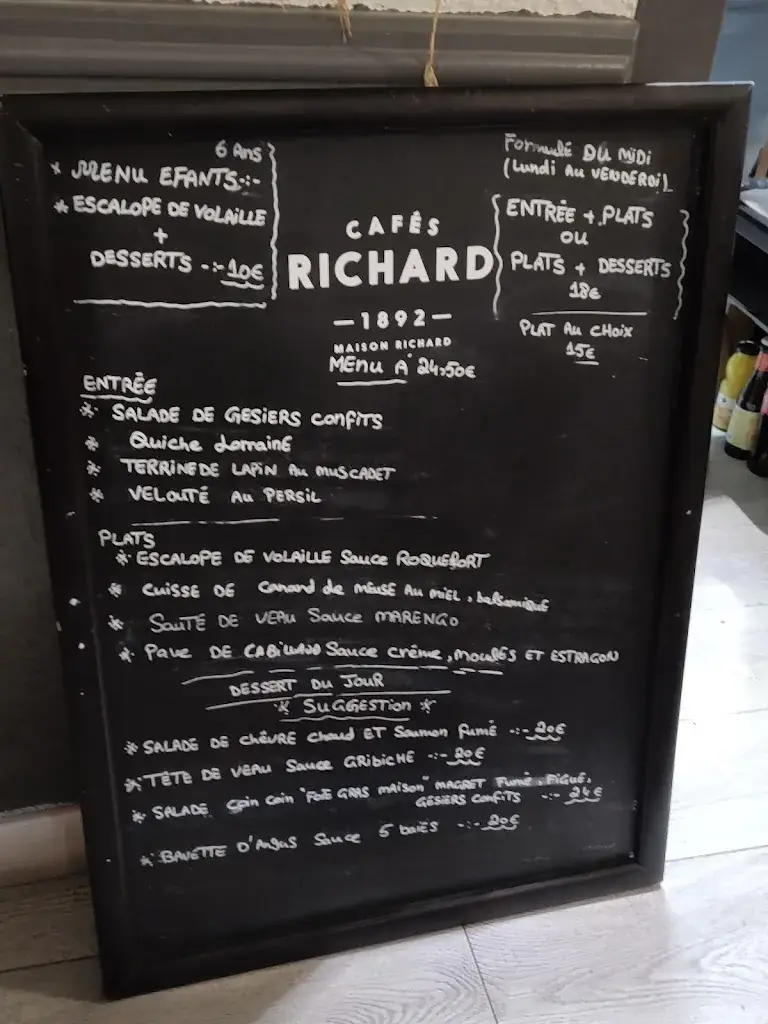 6 Ans
* MENU EFANTS-:-
* ESCALOPE DE VOLAILLE
+
DESSERTS -:- 10€
Formule DU MiDi
(Lundi Au VENDERDi)
ENTRÉE + PLATS
OU
PLATS + DESSERTS
18€
PLAT AU CHOIX
15€
CAFÉS
RICHARD
—1892—
MAISON RICHARD
MENU A 24,50€
ENTRÉE
* SALADE DE GESIERS CONFITS
* Quiche Lorraine
* TERRINE DE LAPIN Au MUSCADET
* VELOUTÉ AU PERSIL
PLATS
* ESCALOPE DE VOLAILLE Sauce ROQUEFORT
* CUISSE DE Canard de MEUSE AU MIEL, balsamique
* SAUTÉ DE VEAU Sauce MARENGO
* PAVE DE CABILLAUD Sauce crème, MOULES ET ESTRAGON
DESSERT DU JOUR
* SUGGESTION *
* SALADE DE CHÈVRE Chaud ET Saumon fumé -:- 20€
* TÊTE DE VEAU Sauce GRIBICHE -:- 20€
* SALADE Coin Coin "FOIE GRAS MAISON" MAGRET Fumé, FIGUE,
GESIERS CONFITS -:- 24€
* BAVETTE D'Angus Sauce 5 baies -:- 20€